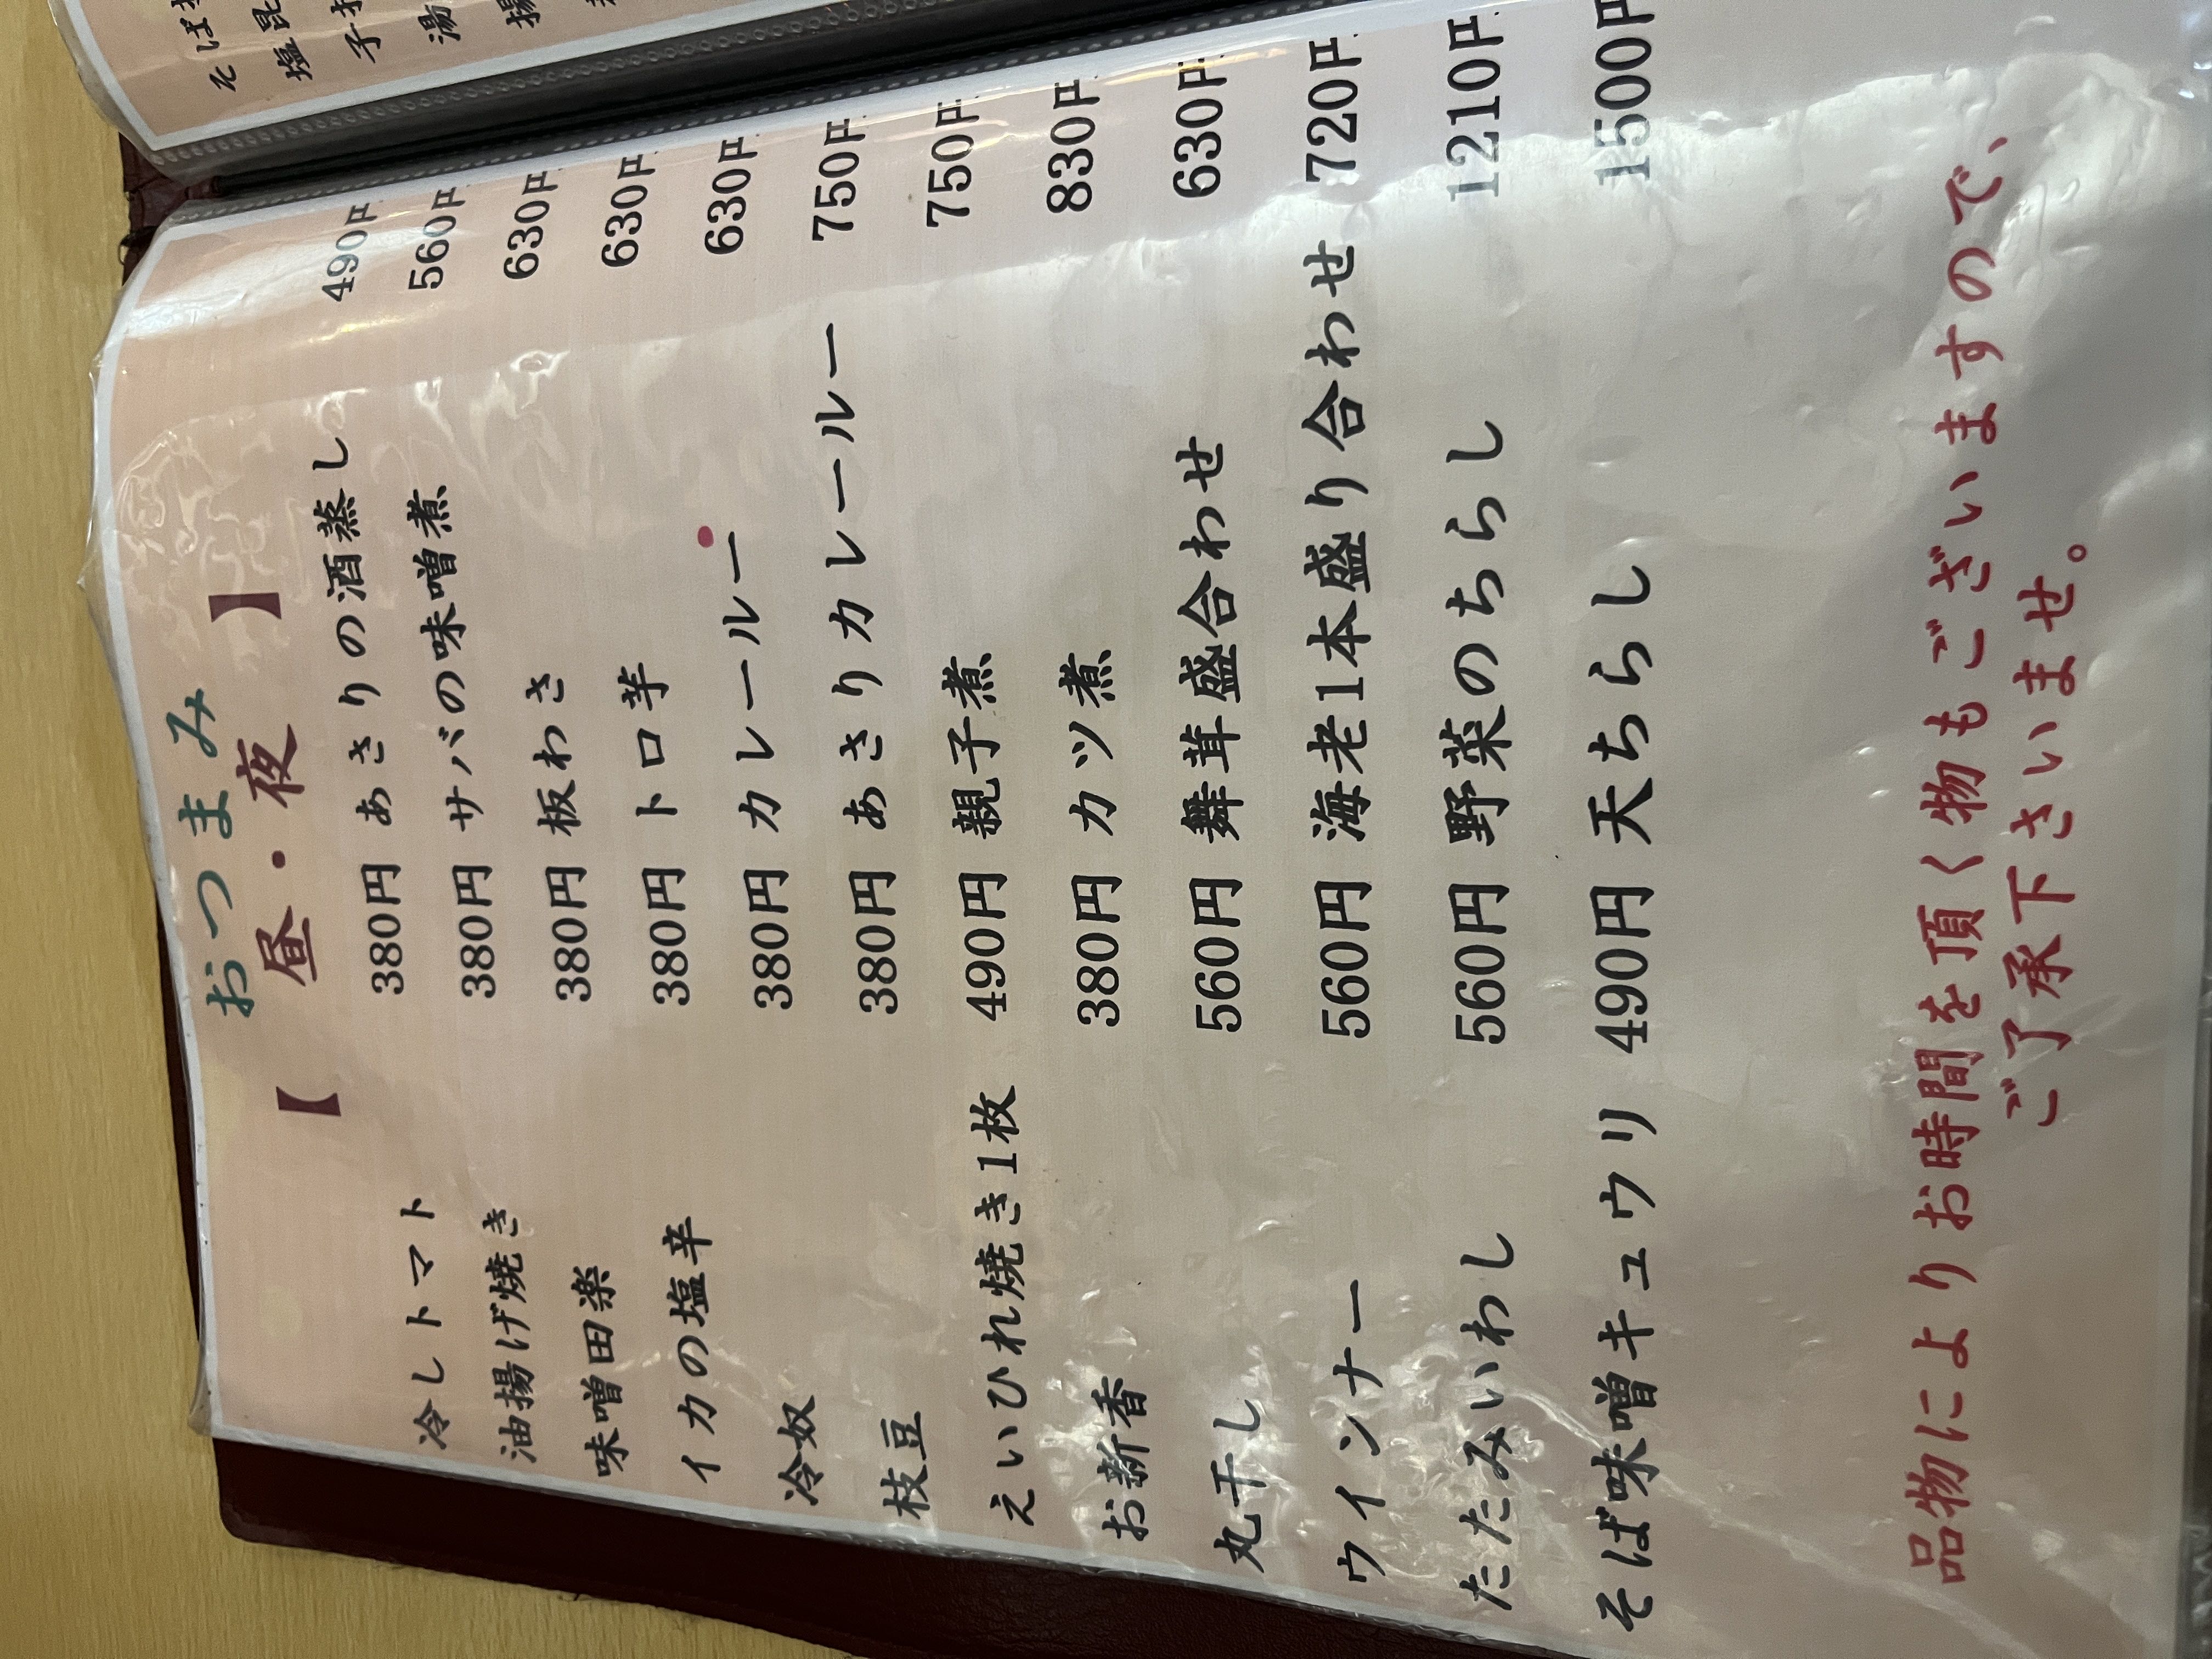 おつまみ
【 昼・夜 】
冷しトマト 380円 あさりの酒蒸し 490円
油揚げ焼き 380円 サバの味噌煮 560円
味噌田楽 380円 板わさ 630円
イカの塩辛 380円 トロ芋 630円
冷奴 380円 カレールー 630円
枝豆 380円 あさりカレールー 750円
えいひれ焼き1枚 490円 親子煮 750円
お新香 380円 カツ煮 830円
丸干し 560円 舞茸盛合わせ 630円
ウインナー 560円 海老1本盛り合わせ 720円
たたみいわし 560円 野菜のちらし 1210円
そば味噌キュウリ 490円 天ちらし 1500円
品物によりお時間を頂く物もございますので、
ご了承下さいませ。
そば
塩昆
子持
湯
揚